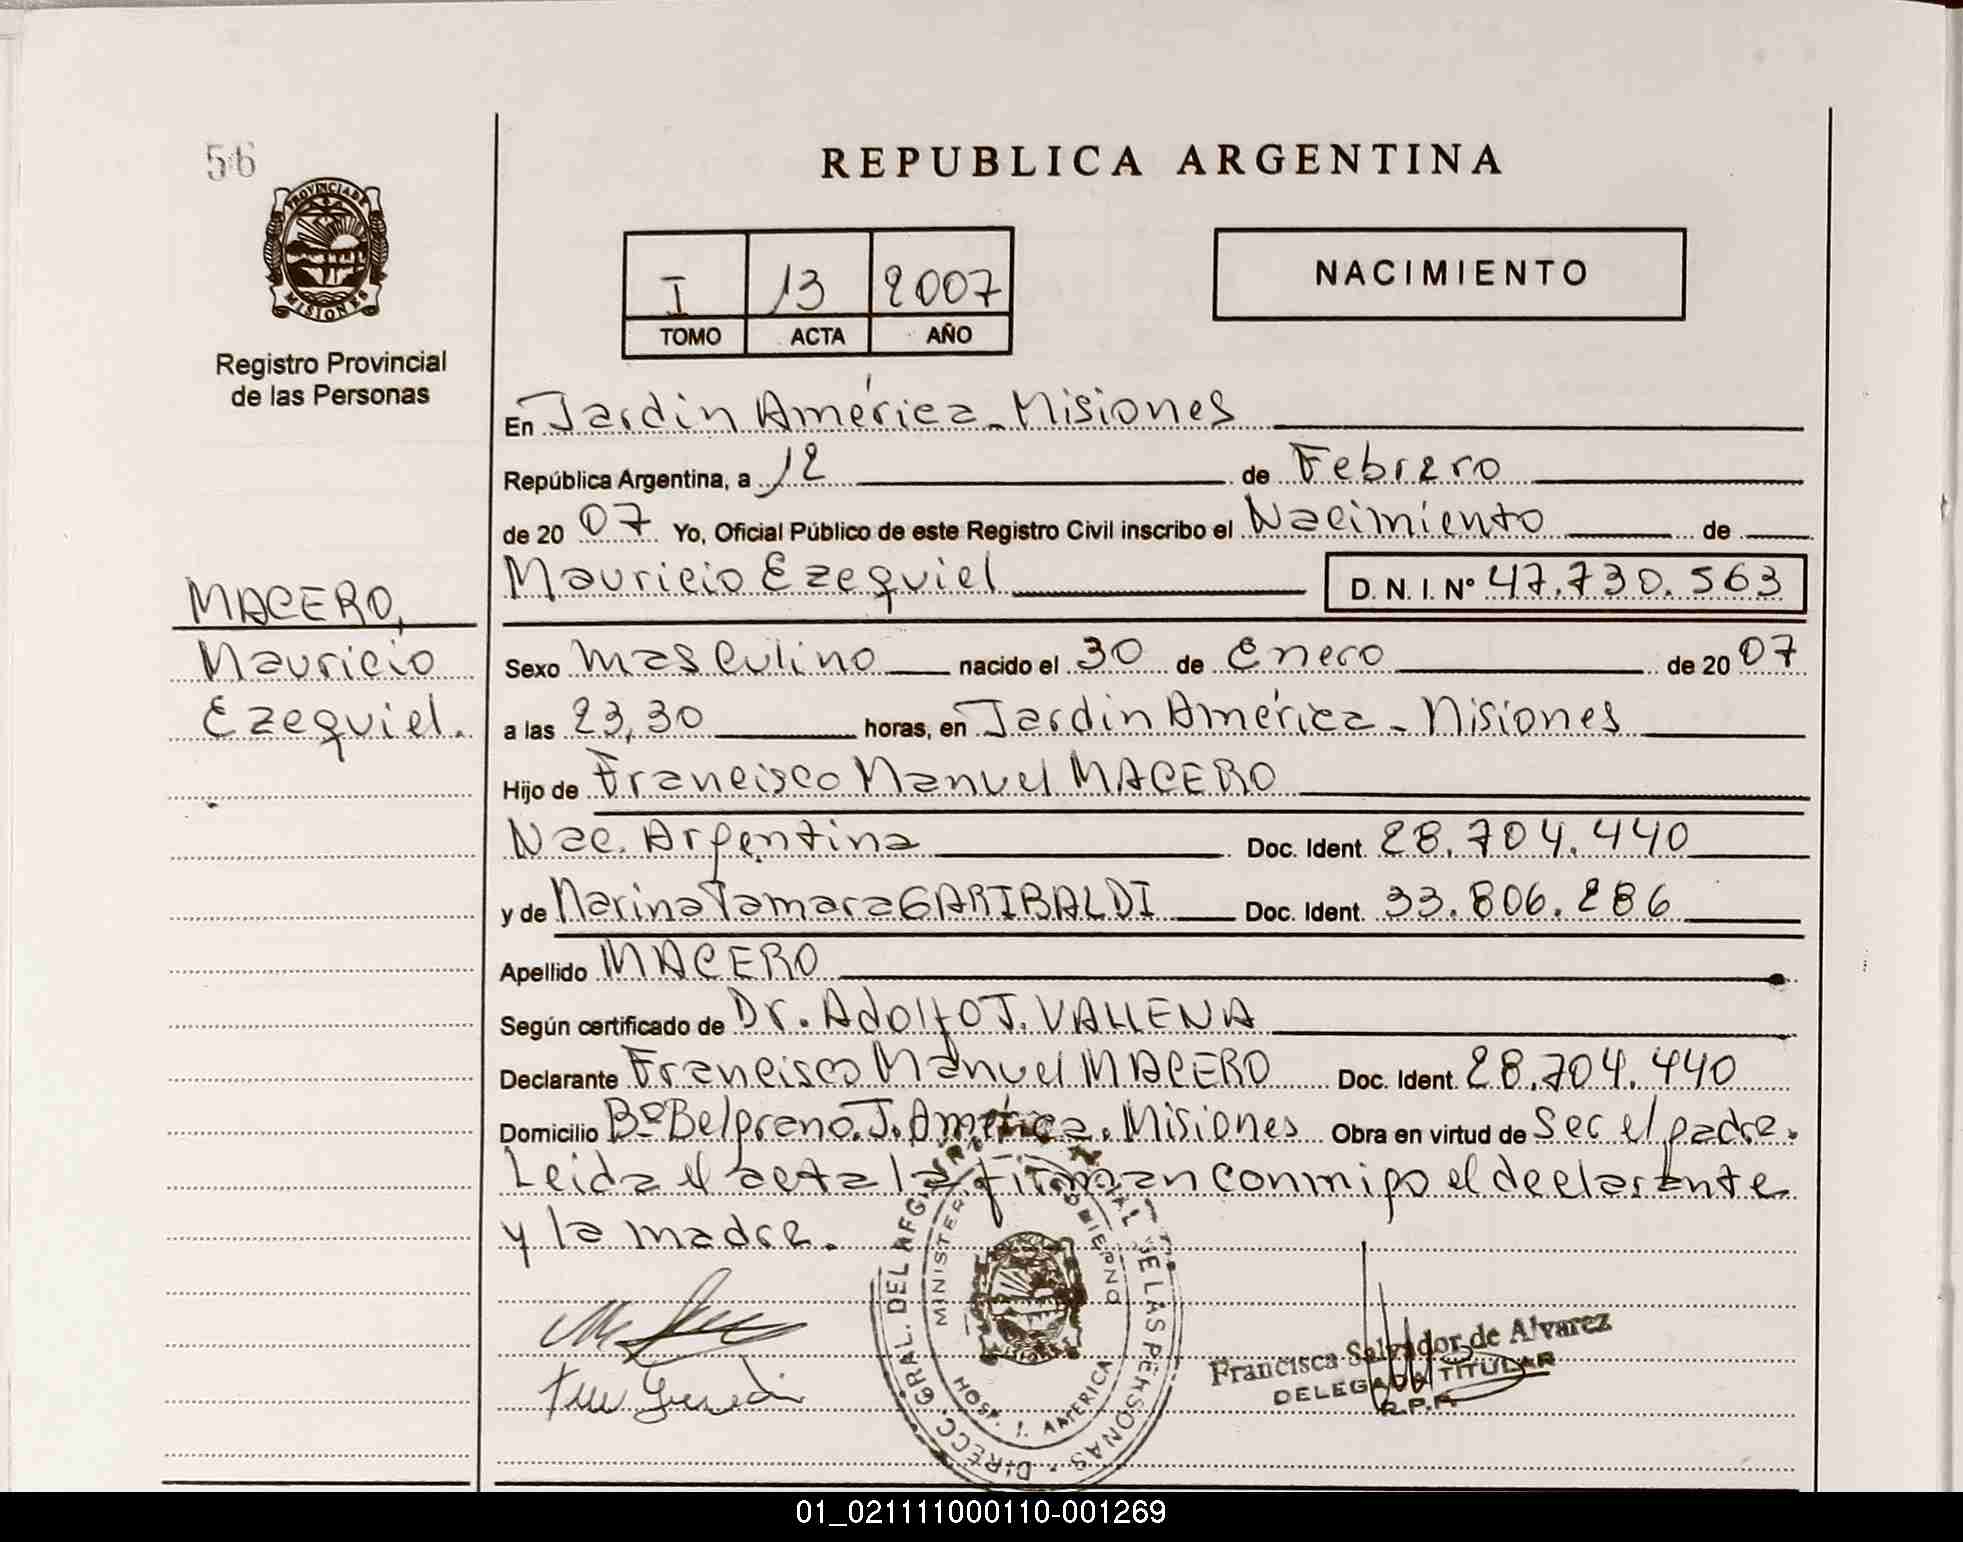 56
PROVINCIA DE
MISIONES
Registro Provincial
de las Personas
MACERO,
Mauricio
Ezequiel.
REPUBLICA ARGENTINA
I 13 2007
TOMO ACTA AÑO
NACIMIENTO
En Jardín América - Misiones
República Argentina, a 12 de Febrero
de 2007 Yo, Oficial Público de este Registro Civil inscribo el Nacimiento de
Mauricio Ezequiel D. N. I. Nº 47.730.563
Sexo masculino nacido el 30 de Enero de 2007
a las 23,30 horas, en Jardín América - Misiones
Hijo de Francisco Manuel MACERO
Nac. Argentina Doc. Ident. 28.704.440
y de Marina Tamara GARIBALDI Doc. Ident. 33.806.286
Apellido MACERO
Según certificado de Dr. Adolfo J. VALLENA
Declarante Francisco Manuel MACERO Doc. Ident. 28.704.440
Domicilio Bº Belgrano. J. América. Misiones Obra en virtud de ser el padre.
Leida el acta la firman conmigo el declarante
y la madre.
DIRECC. GRAL. DEL DE LAS PERSONAS
MINISTERIO GOBIERNO
HOSP. J. AMERICA
Francisca Salgador de Alvarez
DELEGADA TITULAR
R.P.P.
01_021111000110-001269